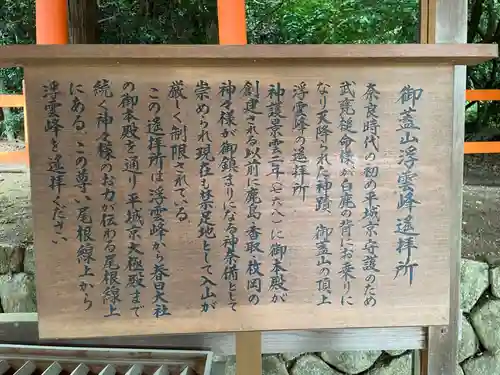 御蓋山浮雲峰遥拝所
奈良時代の初め平城京守護のため
武甕槌命様が白鹿の背にお乗りに
なり天降られた神蹟、御蓋山の頂上
浮雲峰の遥拝所
神護景雲二年(七六八)に御本殿が
創建される以前に鹿島・香取・枚岡の
神々様が御鎮まりになる神奈備として
崇められ現在も禁足地として入山が
厳しく制限されている
この遥拝所は浮雲峰から春日大社
の御本殿を通り平城京大極殿まで
続く神々様のお力が伝わる尾根線上
にある、この尊い尾根線上から
浮雲峰を遥拝ください